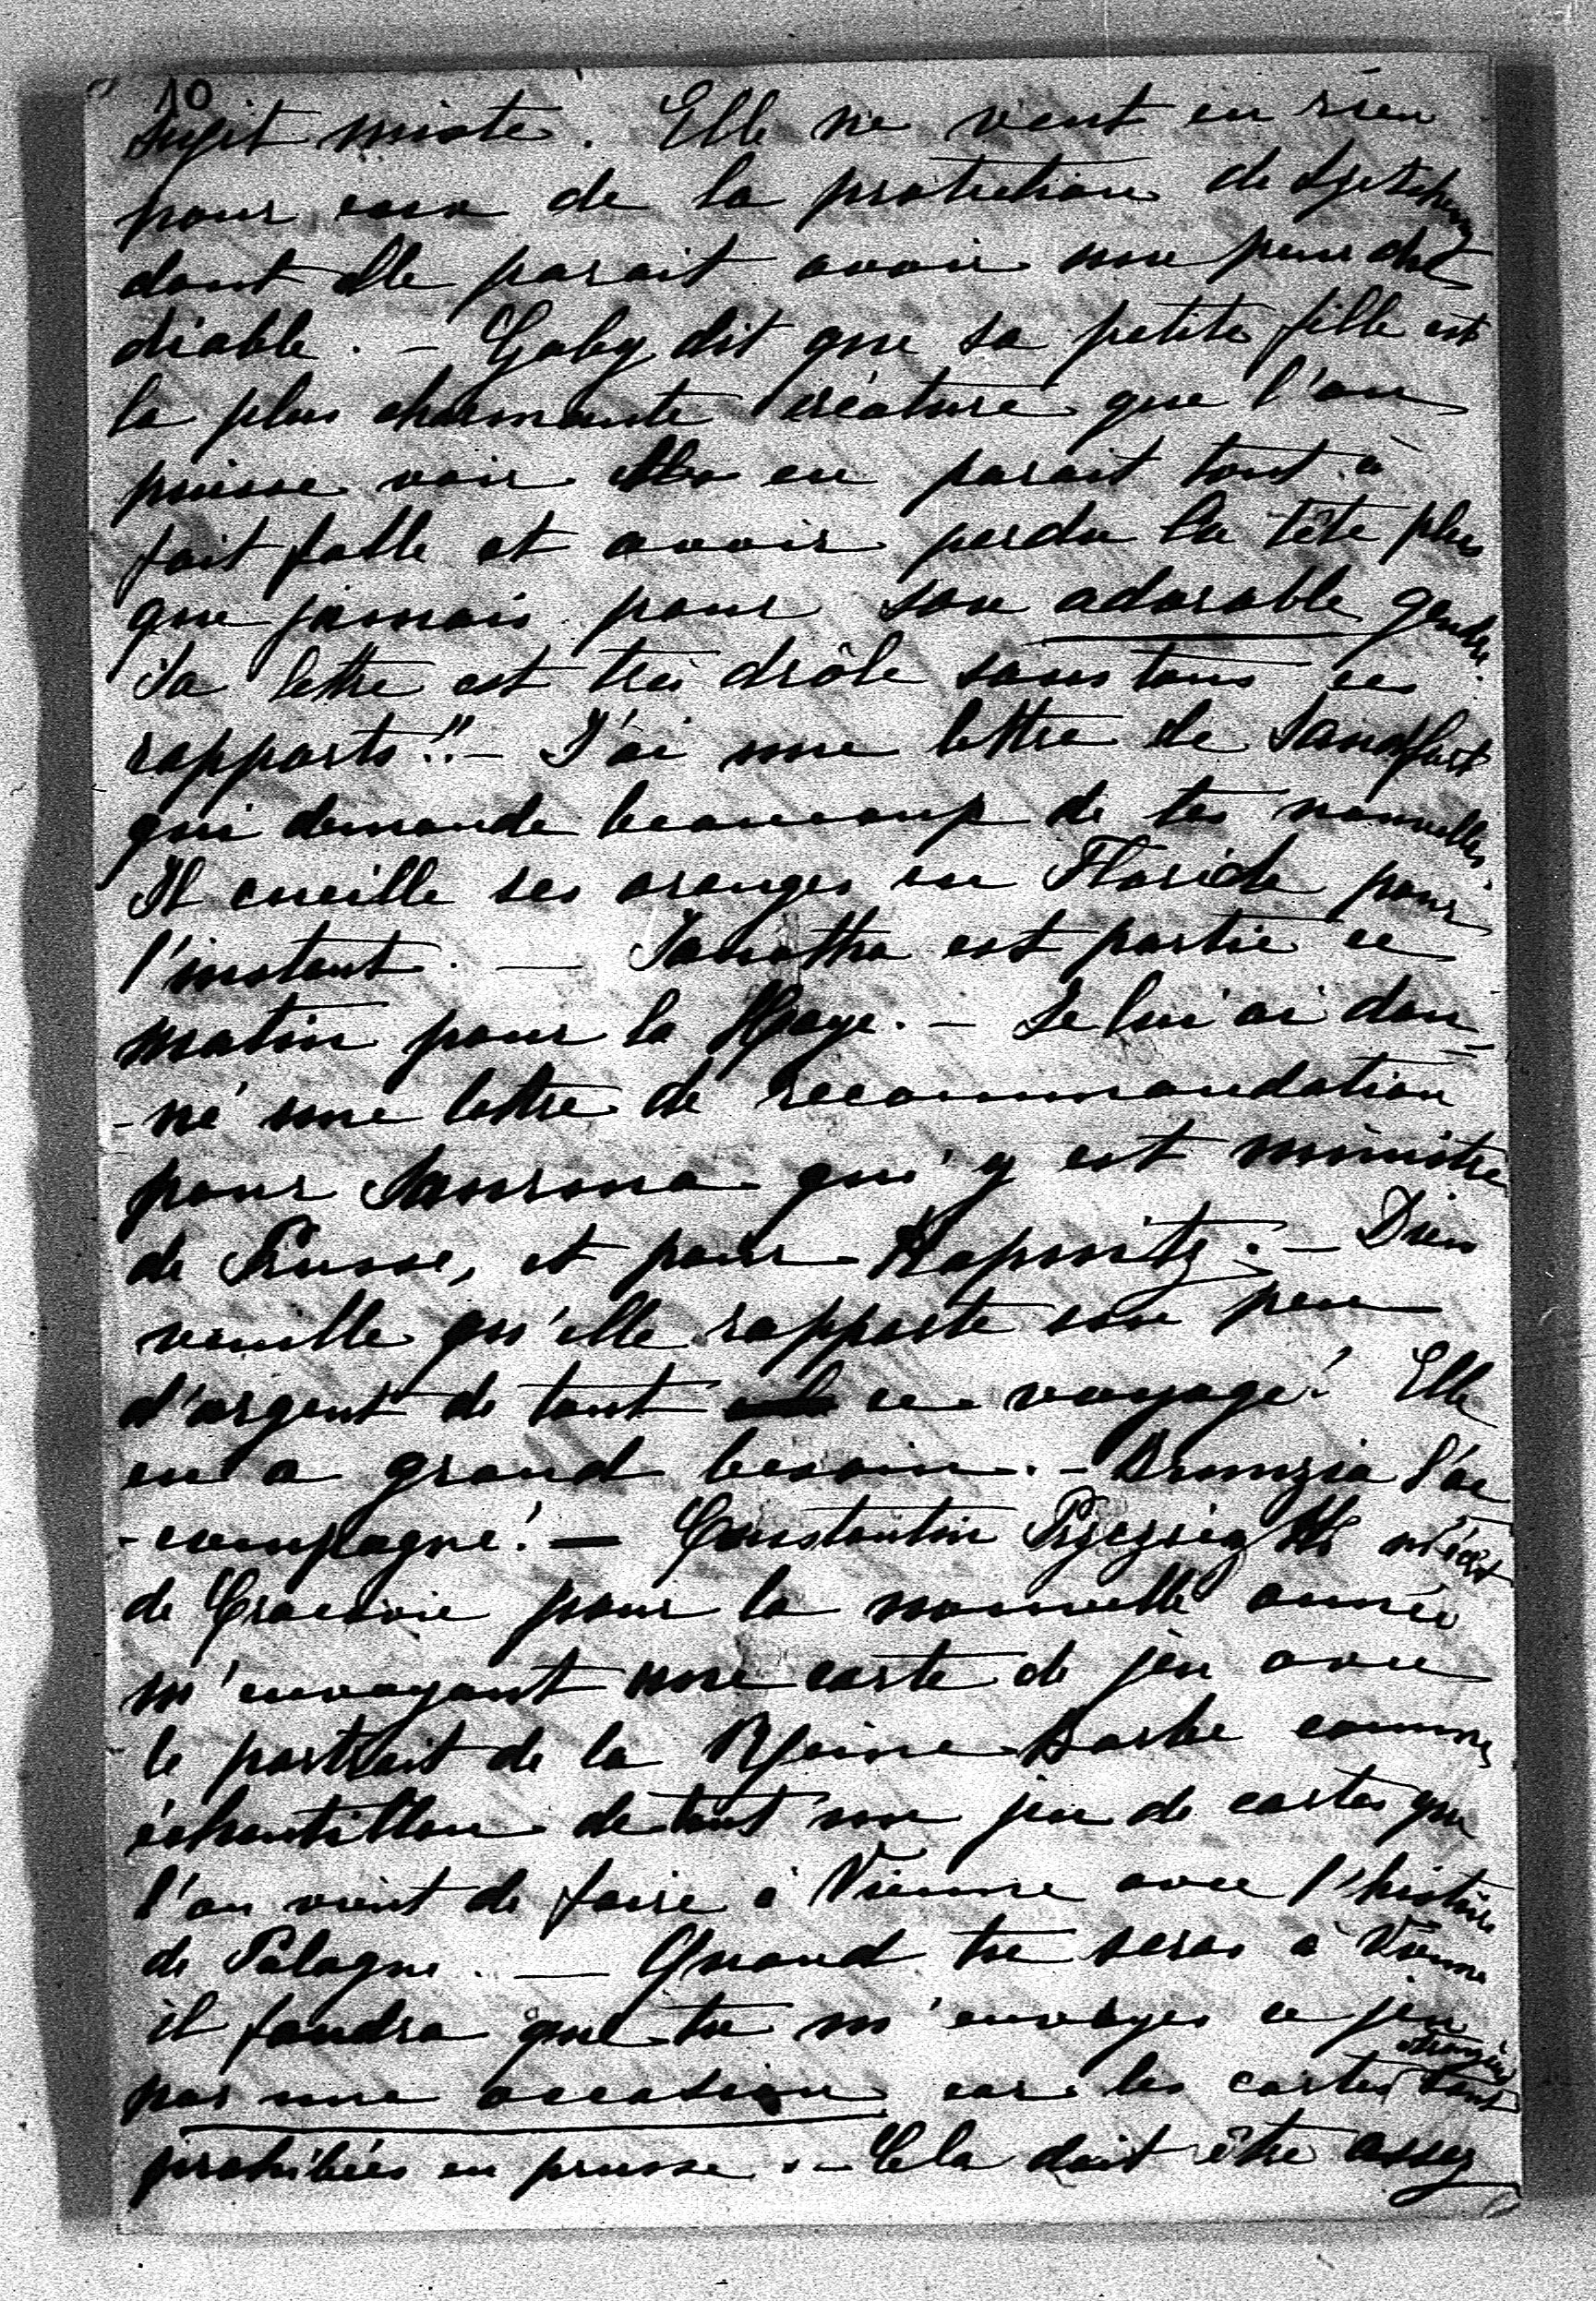 10
sujet mixte. Elle ne veut en rien
pour eux de la protection de
dont elle parait avoir une peur du
diable. — Gaby dit que sa petite fille est
la plus charmante créature que l'on
puisse voir en parait tout à
fait folle et avoir perdu la tête plus
que jamais pour son adorable gendre.
Sa lettre est très drôle sous tous ces
rapports!! — J'ai une lettre de
qui demande beaucoup de tes nouvelles.
Il cueille ses oranges en Floride pour
l'instant. — Janotha est partie ce
matin pour la Haye. — Je lui ai don-
-né une lettre de recommandation
pour Saurma qui y est ministre
de Prusse, et pour . — Dieu
veuille qu'elle rapporte un peu
d'argent de tout ce voyage! Elle
en a grand besoin. — l'ac
-compagne! — Constantin m'écrit
de Cracovie pour la nouvelle année
m'envoyant une carte de jeu avec
le portrait de la Reine Barbe comme
échantillon de tout un jeu de cartes que
l'on vient de faire à Vienne avec l'histoire
de Pologne. — Quand tu seras à Vienne
il faudra que tu m'envoyes ce jeu
par une occasion car les cartes étrangères sont
prohibées en prusse. — Cela doit être assez